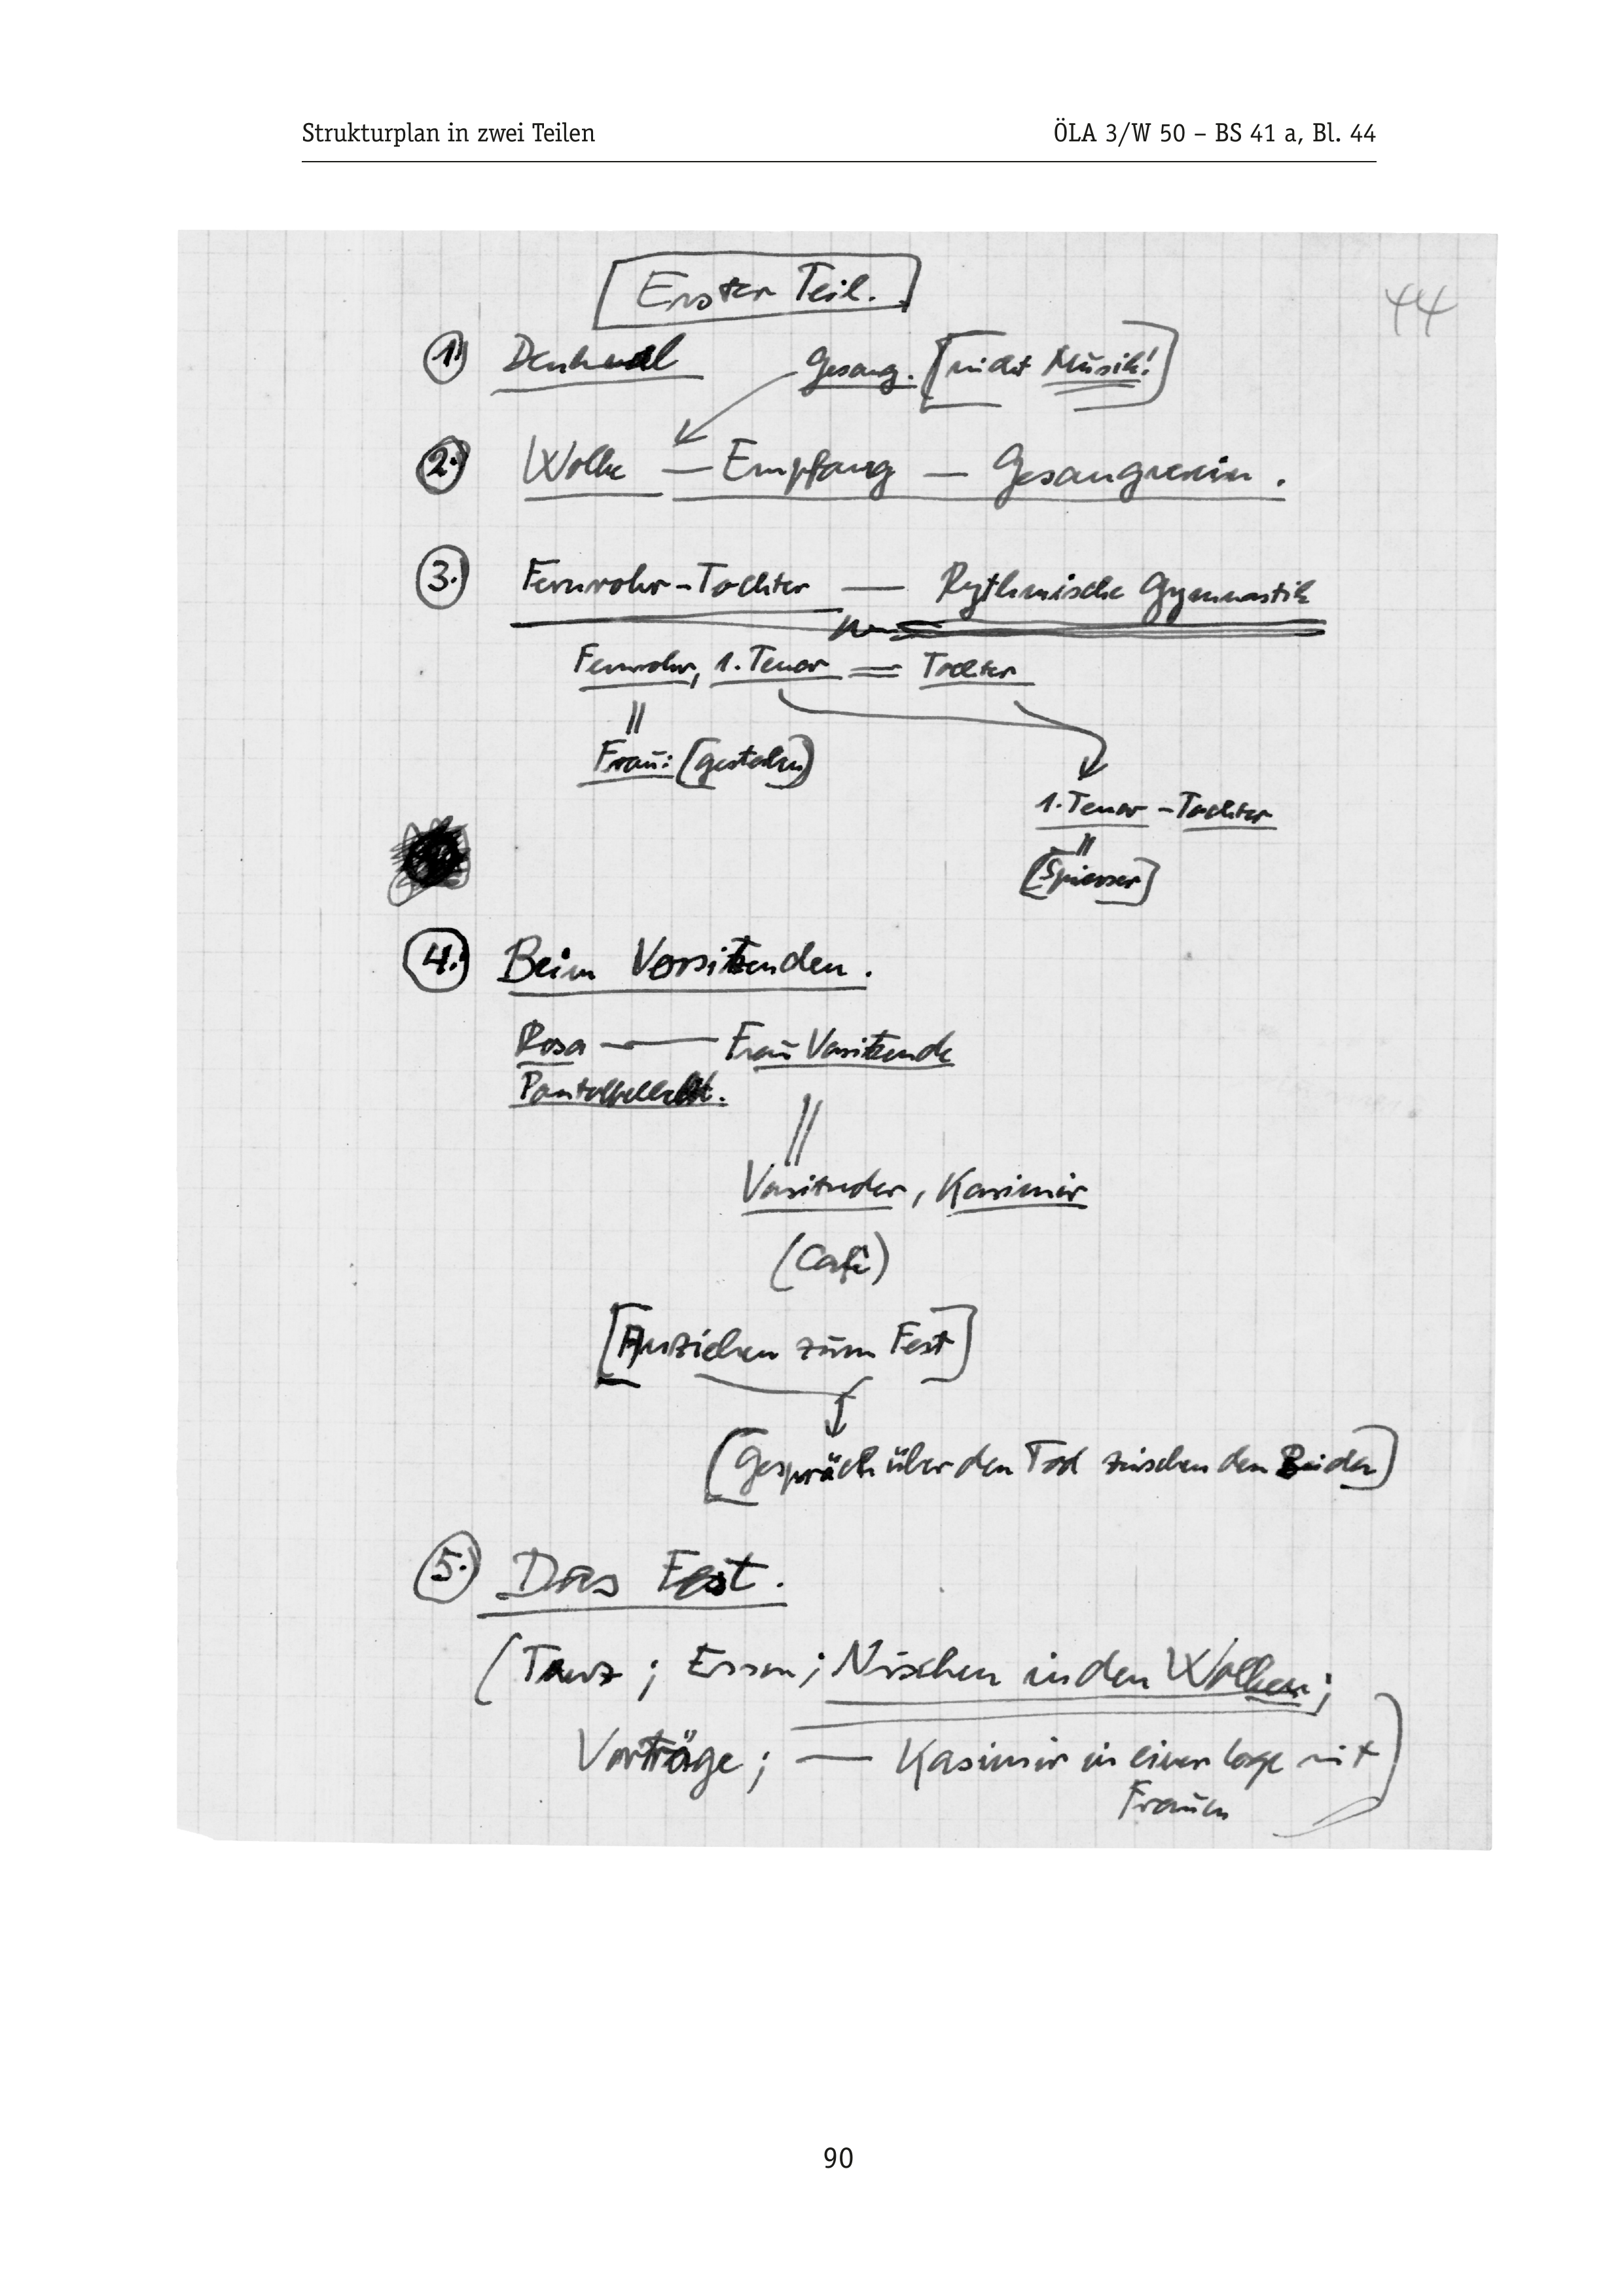 Strukturplan in zwei Teilen ÖLA 3/W 50 – BS 41 a, Bl. 44
Erster Teil.
44
1.) Denkmal Gesang. [nicht Musik!]
2.) Wolke — Empfang — Gesangverein.
3.) Fernrohr-Tochter — Rythmische Gymnastik
Fernrohr, 1. Tenor = Tochter
Frau: (gestohlen)
1. Tenor - Tochter
[Spiesser]
4.) Beim Vorsitzenden.
Rosa — Frau Vorsitzende
Vorsitzender, Kasimir
(Café)
[Anziehen zum Fest]
[Gespräch über den Tod zwischen den Beiden]
5.) Das Fest.
(Tanz; Essen; Nischen in den Wolken;
Vorträge; — Kasimir in einer Loge mit
Frauen)
90